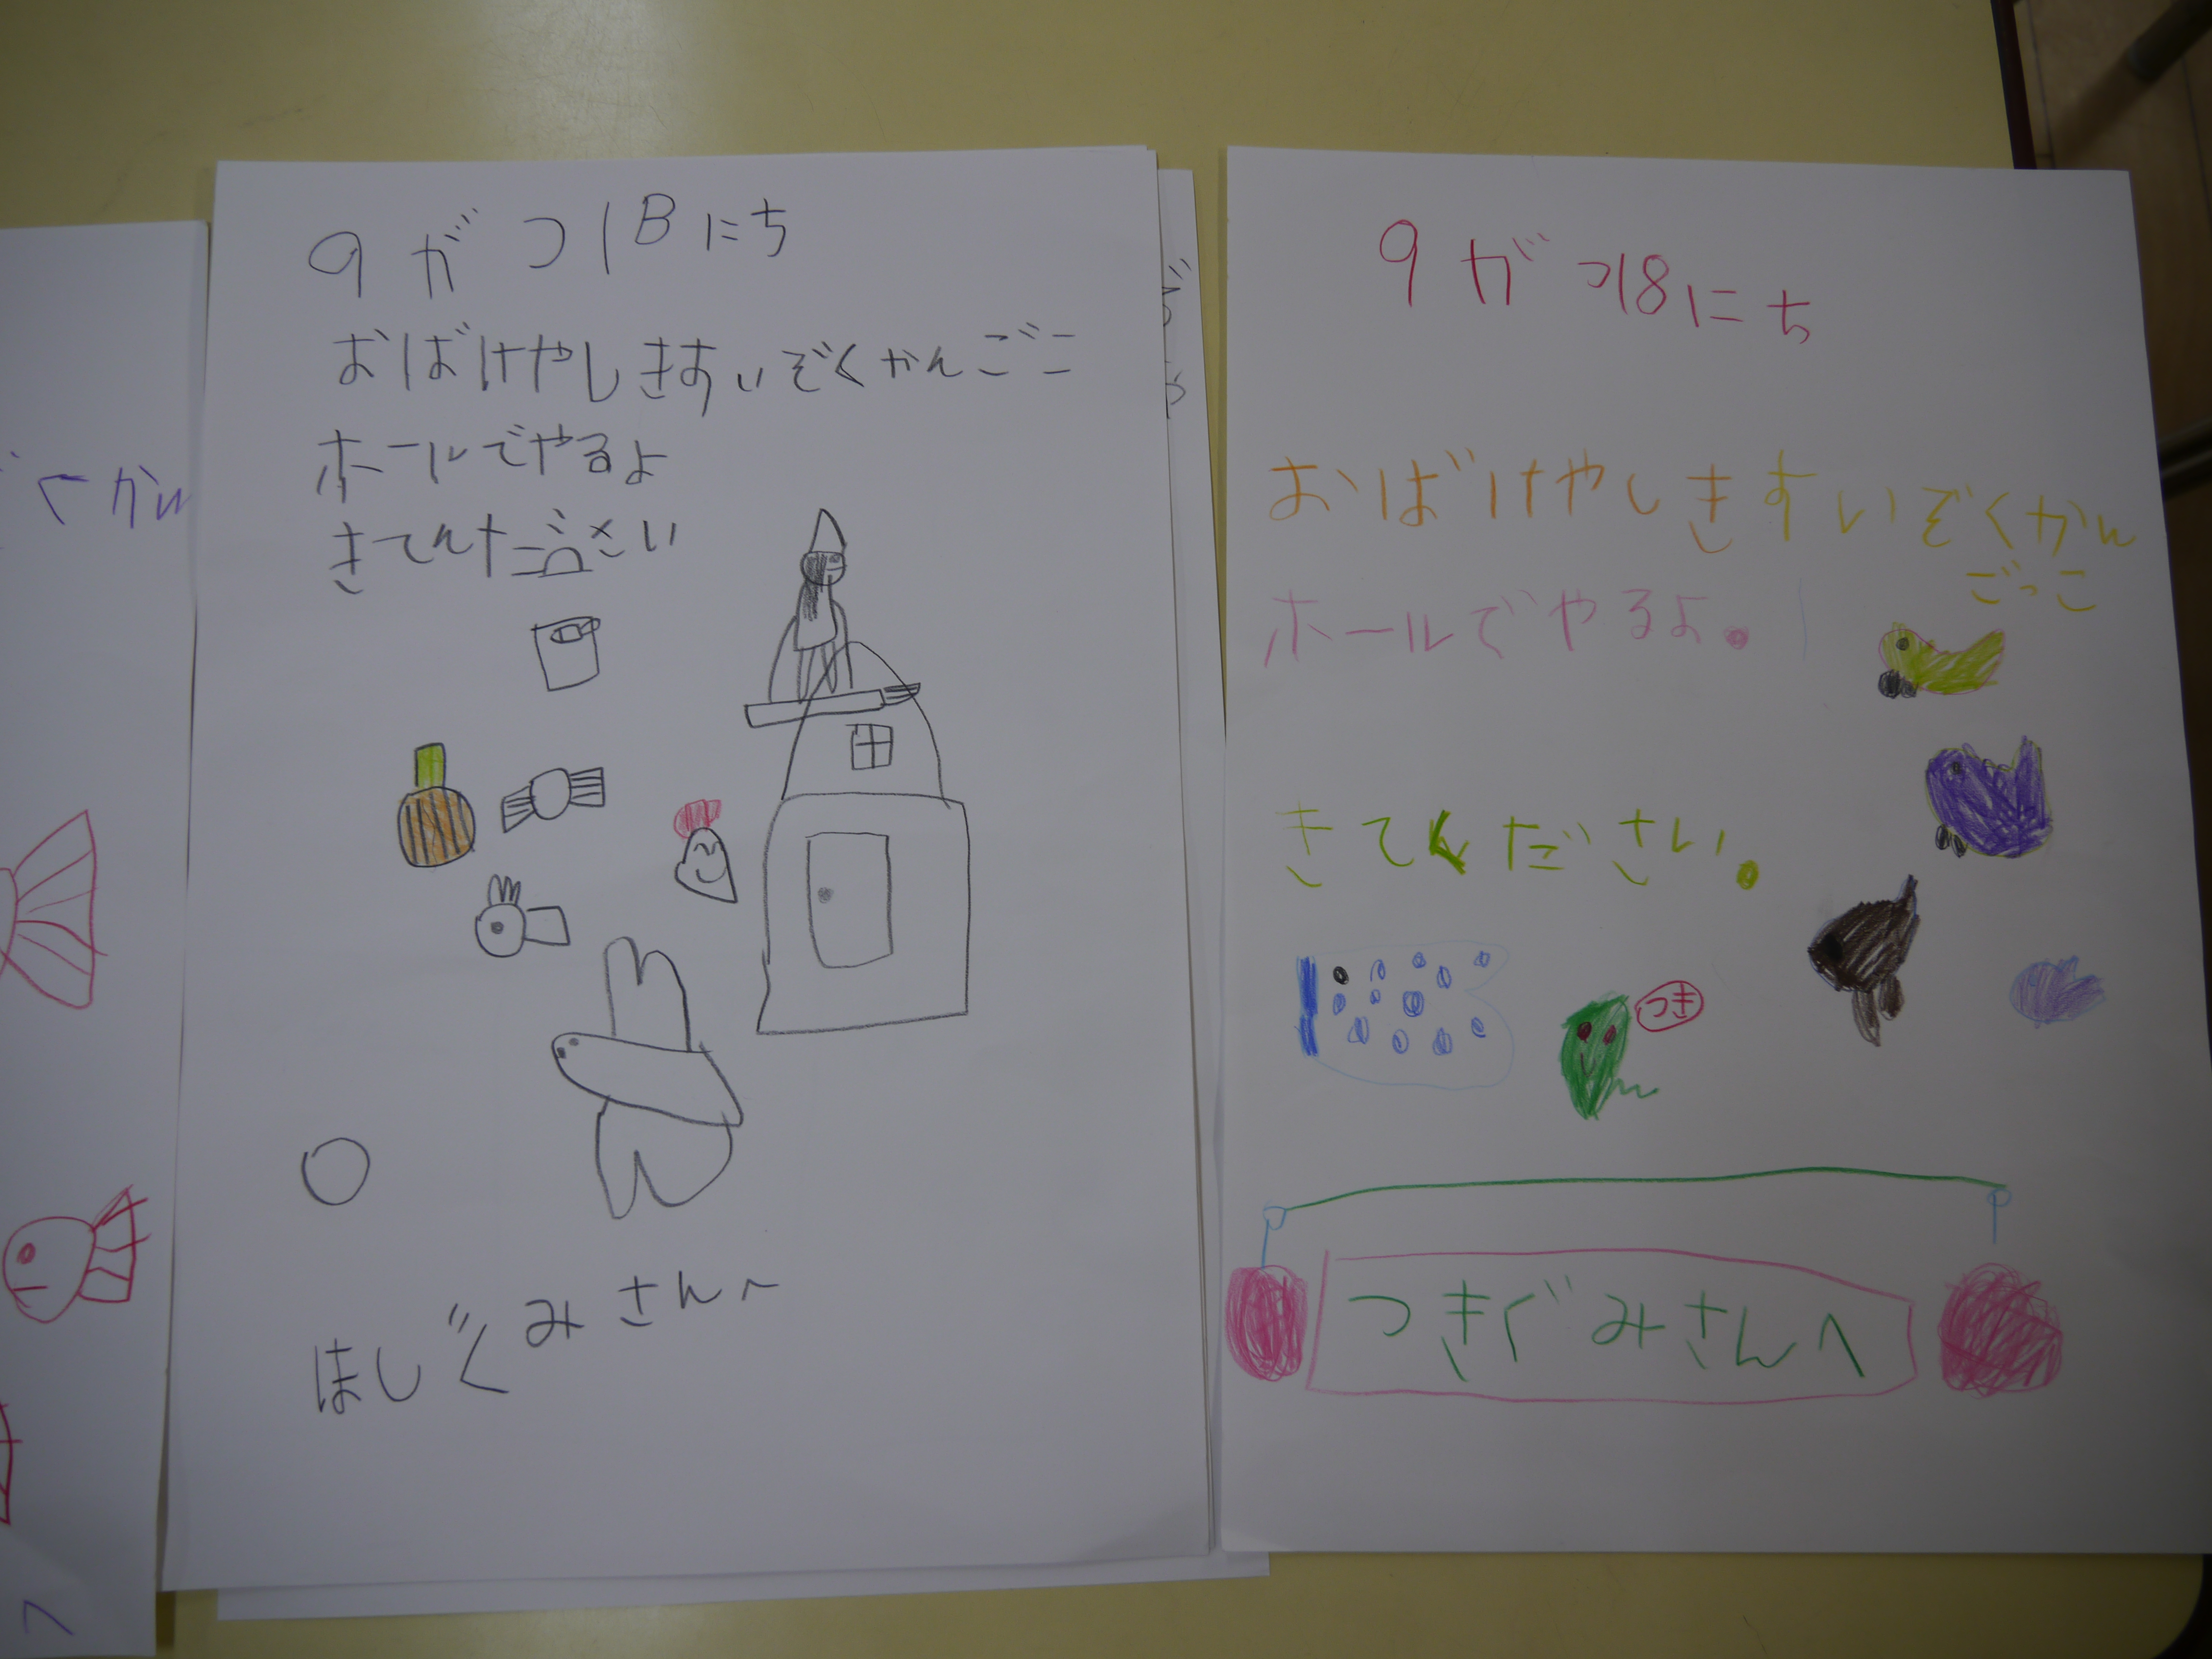 くかん
へ
9がつ18にち
おばけやしきすいぞくかんごこ
ホールでやるよ
きてくださ さい
ほしぐみさんへ
9がつ18にち
おばけやしきすいぞくかん
ごっこ
ホールでやるよ。
きてください。
つき
つきぐみさんへ